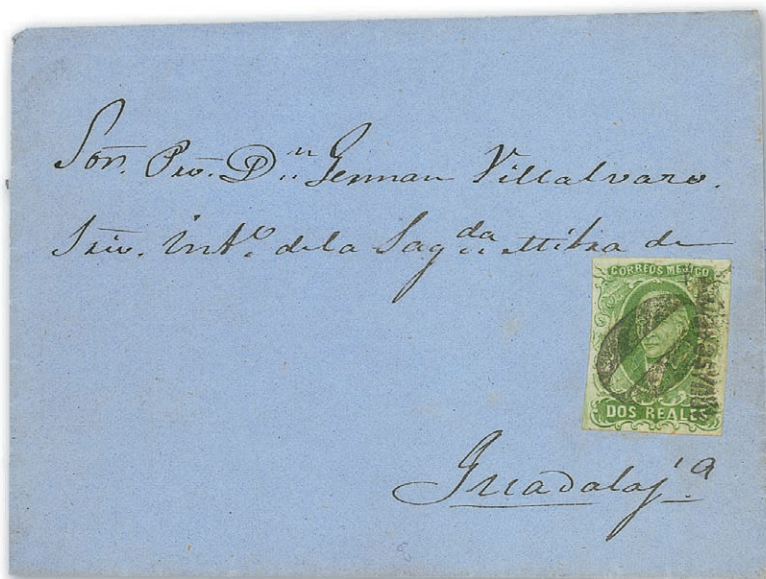 Sor. Pro. Dn. German Villalvaro.
Srio. Into. de la Sagda. Mitra de
CORREOS MEJICO
DOS REALES
Guadalaja